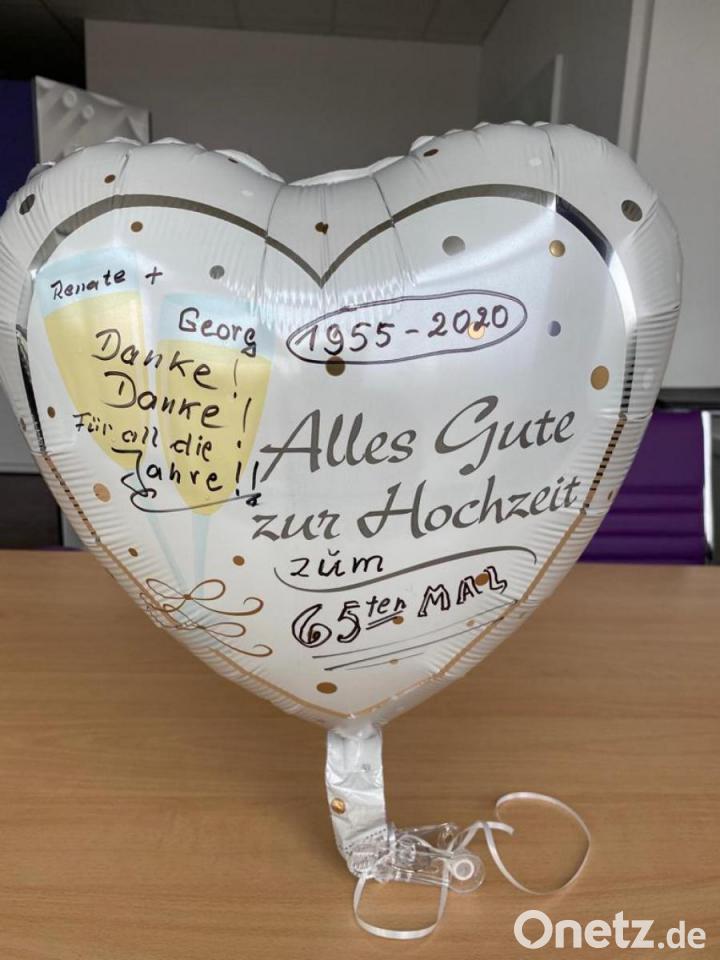 Renate +
Georg
Danke!
Danke!
Für all die
Jahre!!
1955-2020
Alles Gute
zur Hochzeit
zŭm
65ten MAL
Onetz.de